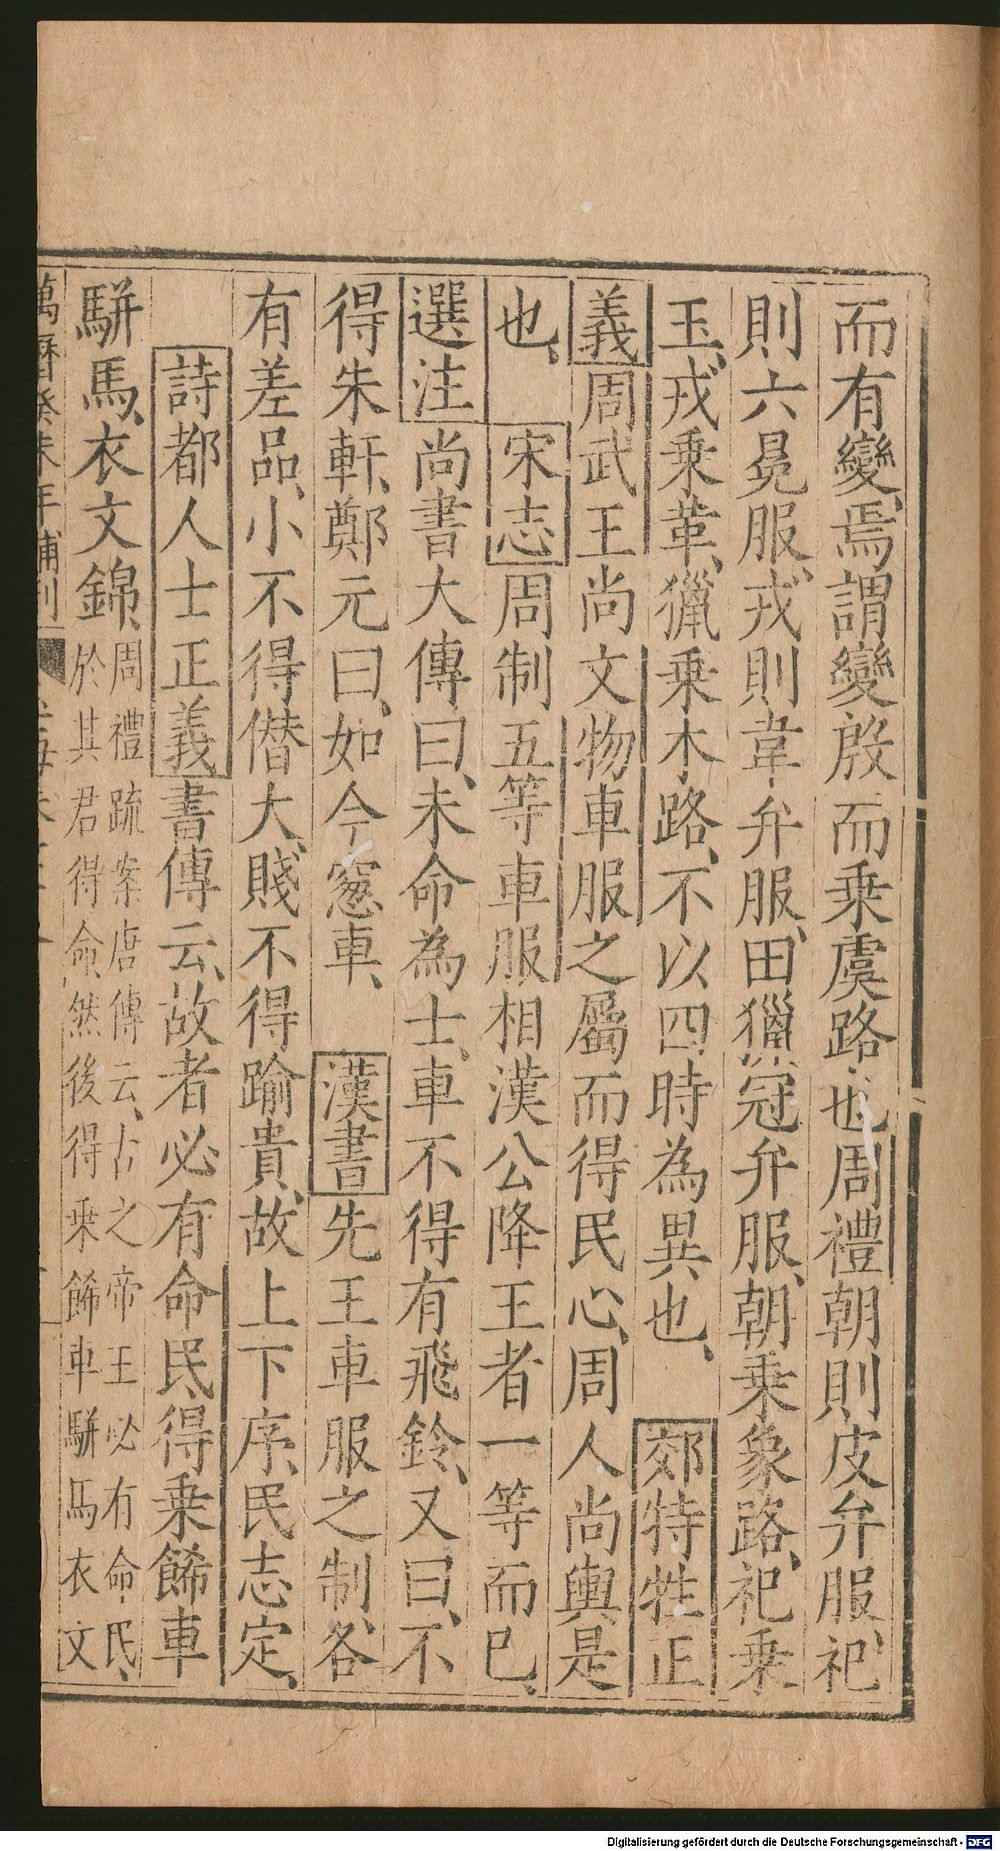 而有變焉謂變殷而乗虞路也周禮朝則皮弁服祀
則六冕服戎則韋弁服田獵冠弁服朝乗象路祀乗
玉戎乗革獵乗木路不以四時為異也　郊特牲正
義周武王尚文物車服之屬而得民心周人尚輿是
也　宋志周制五等車服相漢公降王者一等而已
選注尚書大傳曰未命為士車不得有飛鈴又曰不
得朱軒鄭元曰如今窻車　漢書先王車服之制各
有差品小不得僭大賤不得踰貴故上下序民志定
詩都人士正義書傳云故者必有命民得乗餙車
駢馬衣文錦周禮疏案唐傳云古之帝王必有命民
於其君得命然後得乗餙車駢馬衣文
萬曆癸未年補刊
Digitalisierung gefördert durch die Deutsche Forschungsgemeinschaft - DFG